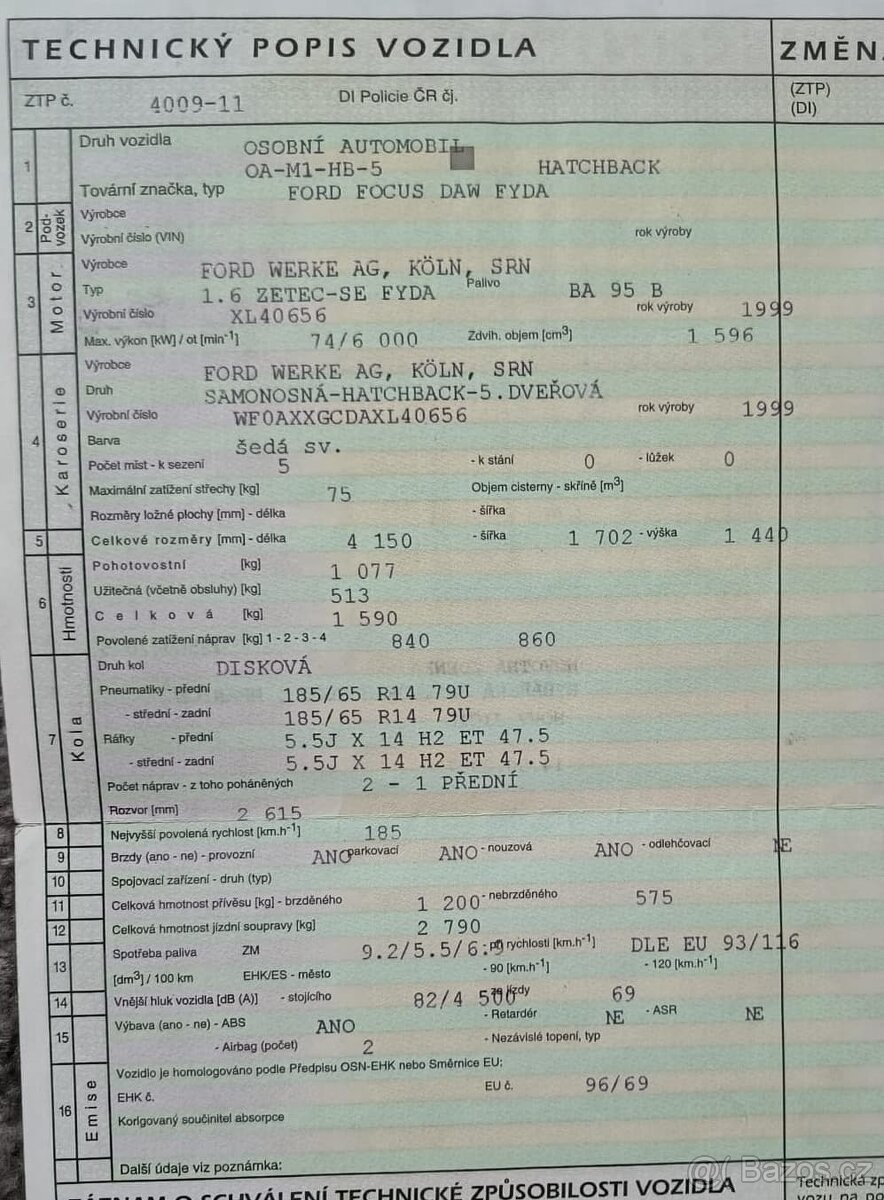 TECHNICKÝ POPIS VOZIDLA
ZMĚN
ZTP č. 4009-11 DI Policie ČR čj. (ZTP)
(DI)
1 Druh vozidla OSOBNÍ AUTOMOBIL
OA-M1-HB-5 HATCHBACK
Tovární značka, typ FORD FOCUS DAW FYDA
2 Pod-vozek Výrobce
Výrobní číslo (VIN) rok výroby
3 Motor Výrobce FORD WERKE AG, KÖLN, SRN
Typ 1.6 ZETEC-SE FYDA Palivo BA 95 B
Výrobní číslo XL40656 rok výroby 1999
Max. výkon [kW] / ot [min-1] 74/6 000 Zdvih. objem [cm3] 1 596
4 Karoserie Výrobce FORD WERKE AG, KÖLN, SRN
Druh SAMONOSNÁ-HATCHBACK-5.DVEŘOVÁ
Výrobní číslo WF0AXXGCDAXL40656 rok výroby 1999
Barva šedá sv.
Počet míst - k sezení 5 - k stání 0 - lůžek 0
Maximální zatížení střechy [kg] 75 Objem cisterny - skříně [m3]
Rozměry ložné plochy [mm] - délka - šířka
5 Celkové rozměry [mm] - délka 4 150 - šířka 1 702 - výška 1 440
6 Hmotnosti Pohotovostní [kg] 1 077
Užitečná (včetně obsluhy) [kg] 513
Celková [kg] 1 590
Povolené zatížení náprav [kg] 1 - 2 - 3 - 4 840 860
7 Kola Druh kol DISKOVÁ
Pneumatiky - přední 185/65 R14 79U
- střední - zadní 185/65 R14 79U
Ráfky - přední 5.5J X 14 H2 ET 47.5
- střední - zadní 5.5J X 14 H2 ET 47.5
Počet náprav - z toho poháněných 2 - 1 PŘEDNÍ
Rozvor [mm] 2 615
8 Nejvyšší povolená rychlost [km.h-1] 185
9 Brzdy (ano - ne) - provozní ANO parkovací ANO - nouzová ANO - odlehčovací NE
10 Spojovací zařízení - druh (typ)
11 Celková hmotnost přívěsu [kg] - brzděného 1 200 - nebrzděného 575
12 Celková hmotnost jízdní soupravy [kg] 2 790
13 Spotřeba paliva ZM 9.2/5.5/6.9 při rychlosti [km.h-1] DLE EU 93/116
[dm3] / 100 km EHK/ES - město - 90 [km.h-1] - 120 [km.h-1]
14 Vnější hluk vozidla [dB (A)] - stojícího 82/4 500 za jízdy 69
15 Výbava (ano - ne) - ABS ANO - Retardér NE - ASR NE
- Airbag (počet) 2 - Nezávislé topení, typ
16 Emise Vozidlo je homologováno podle Předpisu OSN-EHK nebo Směrnice EU:
EHK č. EU č. 96/69
Korigovaný součinitel absorpce
Další údaje viz poznámka:
ZÁZNAM O SCHVÁLENÍ TECHNICKÉ ZPŮSOBILOSTI VOZIDLA
Technická
vozu na
Bazos.cz